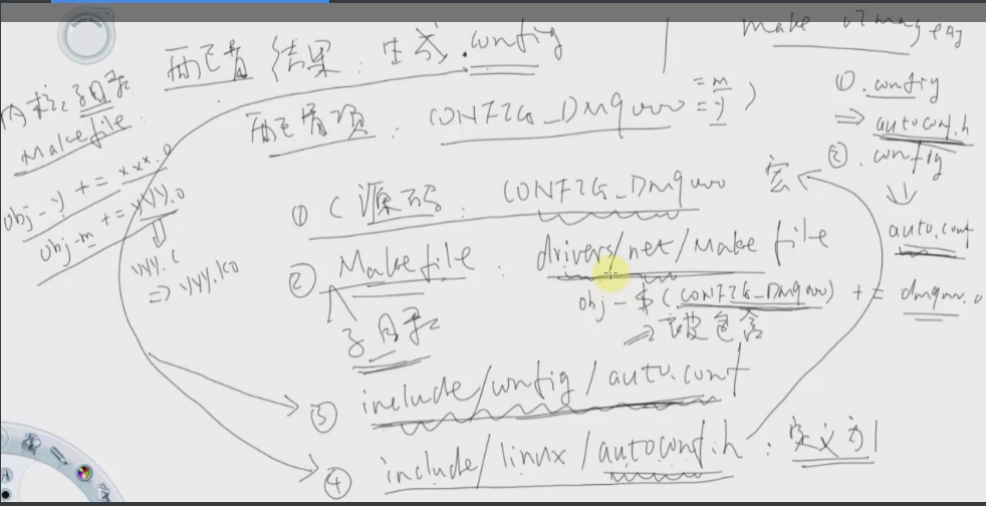 配置结果：生成.config
make uImage
内核：子目录
Makefile
obj-y += xxx.o
obj-m += yyy.o
yyy.c
=> yyy.ko
配置项：CONFIG_DM9000 =m
=y
① .config
=> autoconf.h
② .config
auto.conf
① C源码：CONFIG_DM9000 宏
② Makefile：drivers/net/Makefile
子目录
obj-$(CONFIG_DM9000) += dm9000.o
=> 被包含
③ include/config/auto.conf
④ include/linux/autoconf.h：定义为1